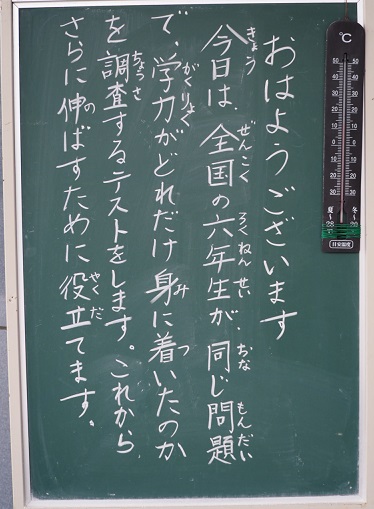 おはようございます
今日は、全国の六年生が、同じ問題
きょう ぜんこく ろくねんせい おな もんだい
で、学力がどれだけ身に着いたのか
がくりょく み つ
を調査するテストをします。これから
ちょうさ
さらに伸ばすために役立てます。
の やくだ
℃
50 50
40 40
30 30
20 20
10 10
0 0
10 10
20 20
30 30
夏 冬
目安温度